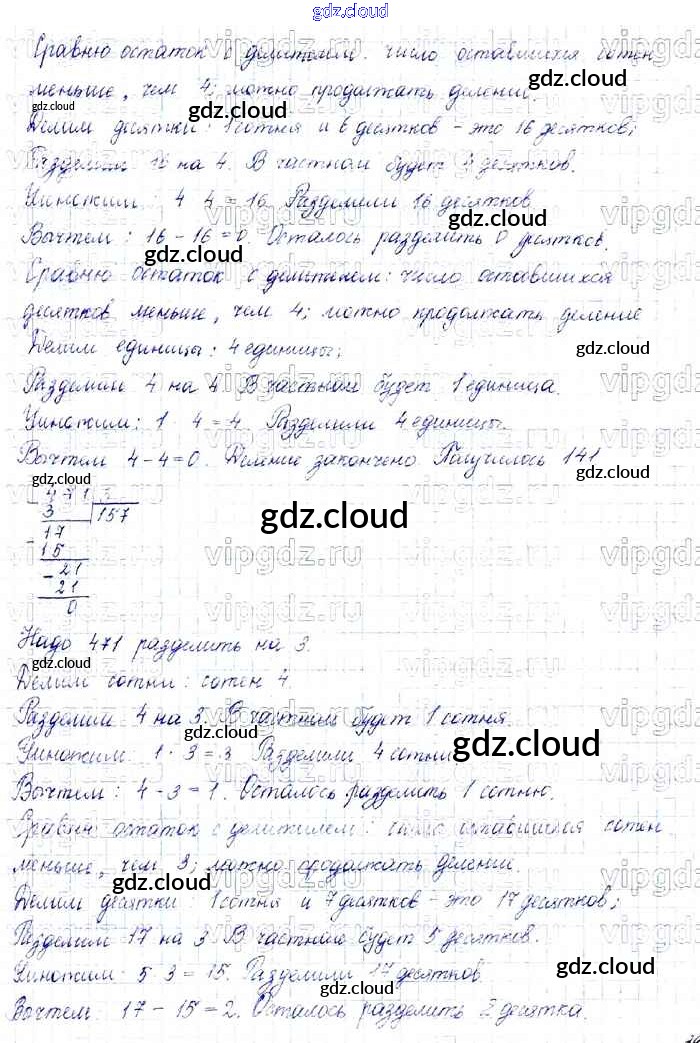 gdz.cloud
Сравню остаток с делителем: число оставшихся сотен
меньше, чем 4; можно продолжать деление.
Делим десятки: 1 сотня и 6 десятков - это 16 десятков;
Разделим 16 на 4. В частном будет 4 десятков.
Умножим: 4 4 = 16. Разделили 16 десятков
Вычтем: 16 - 16 = 0. Осталось разделить 0 десятков.
Сравню остаток с делителем: число оставшихся
десятков меньше, чем 4; можно продолжать деление
Делим единицы: 4 единицы;
Разделим 4 на 4 В частном будет 1 единица.
Умножим: 1 · 4 = 4. Разделили 4 единицы.
Вычтем 4 - 4 = 0. Деление закончено. Получилось 141
471 3
3 157
17
- 15
- 21
21
0
Надо 471 разделить на 3.
Делим сотни: сотен 4.
Разделим 4 на 3. В частном будет 1 сотня.
Умножим: 1 · 3 = 3 Разделили 4 сотни
Вычтем: 4 - 3 = 1. Осталось разделить 1 сотню.
Сравню остаток с делителем: число оставшихся сотен
меньше, чем 3; можно продолжать деление.
Делим десятки: 1 сотня и 7 десятков - это 17 десятков;
Разделим 17 на 3 В частном будет 5 десятков.
Умножим: 5 3 = 15. Разделили 17 десятков.
Вычтем: 17 - 15 = 2. Осталось разделить 2 десятка.